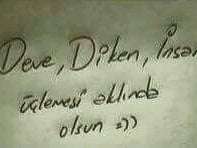 Deve, Diken, İnsan
üçlemesi aklında
olsun =))